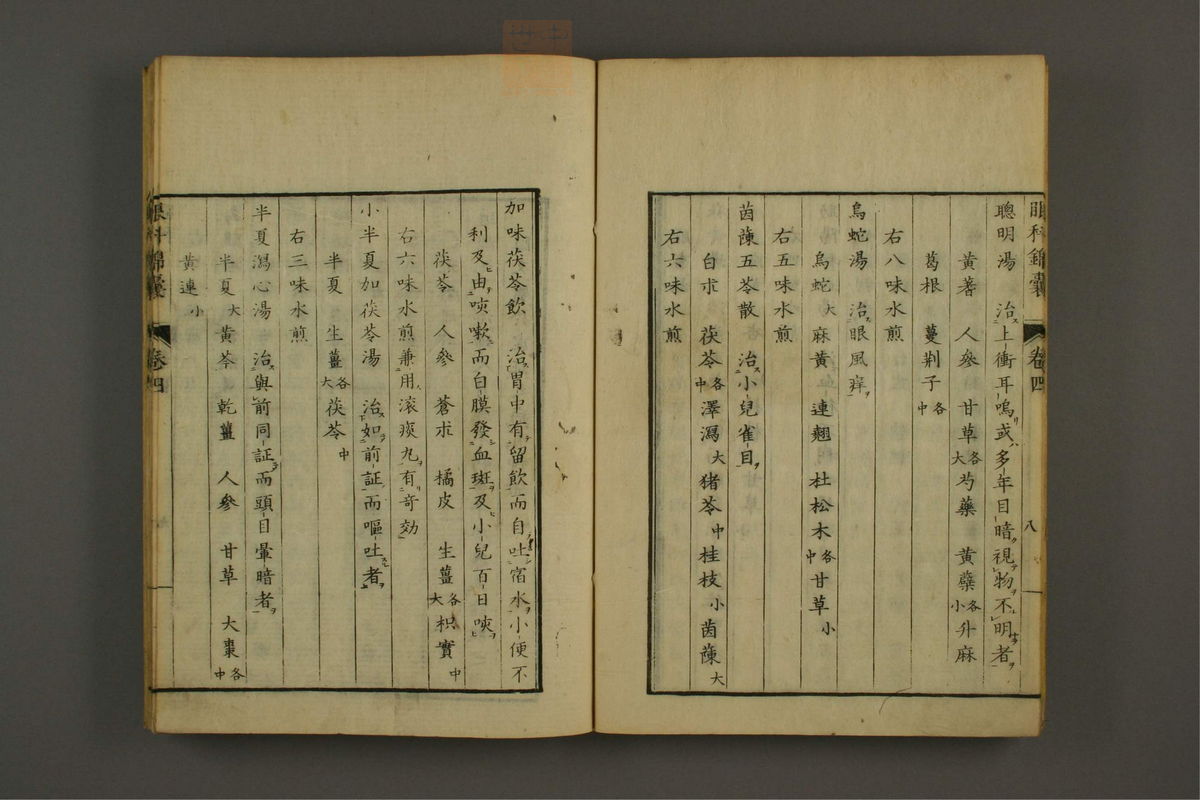 眼科錦囊 卷四 八
聰明湯 治上衝耳鳴或多年目暗視物不明者
黄耆 人參 甘草各大 芍藥 黄蘗各小 升麻
葛根 蔓荆子各中
右八味水煎
烏蛇湯 治眼風痒
烏蛇大 麻黄 連翹 杜松木各中 甘草小
右五味水煎
茵蔯五苓散 治小兒雀目
白朮 茯苓各中 澤瀉大 猪苓中 桂枝小 茵蔯大
右六味水煎
加味茯苓飲 治胃中有留飲而自吐宿水小便不
利及由咳嗽而白膜發血斑及小兒百日咳
茯苓 人參 蒼朮 橘皮 生薑各大 枳實中
右六味水煎兼用滚痰丸有奇効
小半夏加茯苓湯 治如前証而嘔吐者
半夏 生薑各大 茯苓中
右三味水煎
半夏瀉心湯 治與前同証而頭目暈暗者
半夏大 黄芩 乾薑 人參 甘草 大棗各中
黄連小
眼科錦囊 卷四